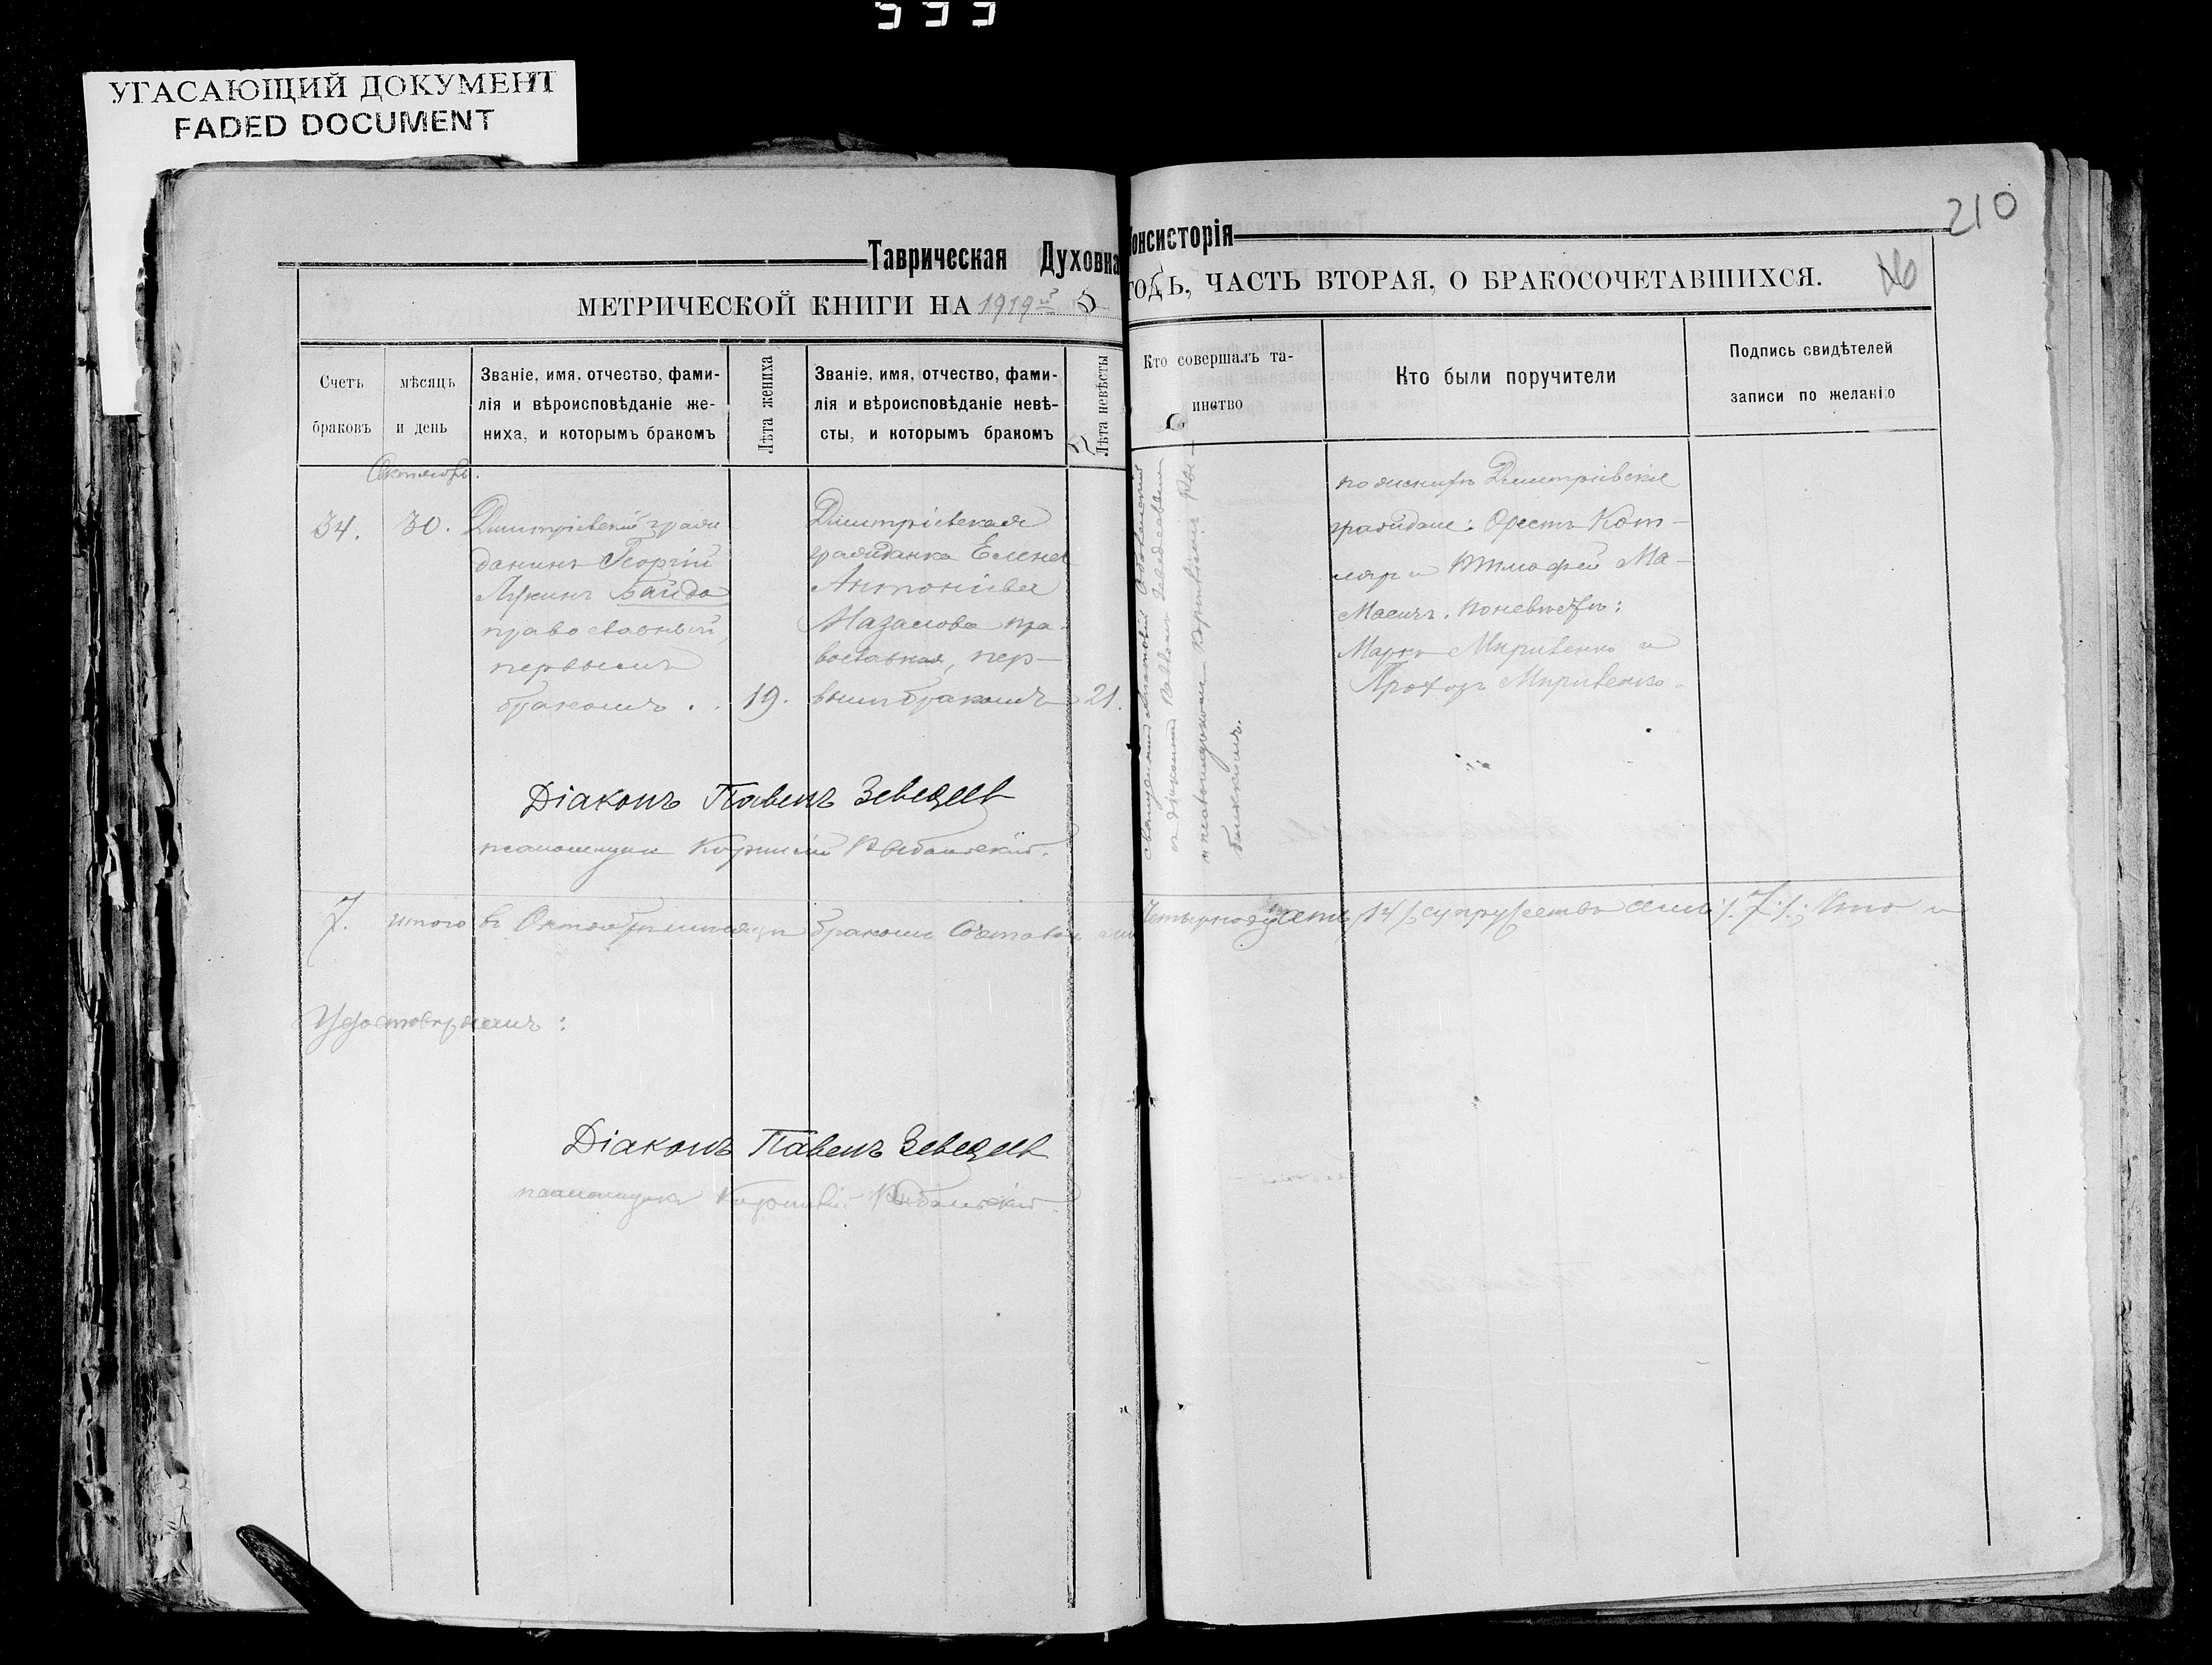 УГАСАЮЩИЙ ДОКУМЕНТ
FADED DOCUMENT
210
Таврическая Духовна
онсисторія
МЕТРИЧЕСКОЙ КНИГИ НА 1919й
ГОДЪ, ЧАСТЬ ВТОРАЯ, О БРАКОСОЧЕТАВШИХСЯ.
Счетъ
браковъ
мѣсяцъ
и день
Званіе, имя, отчество, фами-
лія и вѣроисповѣданіе же-
ниха, и которымъ бракомъ
Лѣта жениха
Званіе, имя, отчество, фами-
лія и вѣроисповѣданіе невѣ-
сты, и которымъ бракомъ
Лѣта невѣсты
Кто совершалъ та-
инство
Кто были поручители
Подпись свидѣтелей
записи по желанію
Октябрь.
34.
30.
Димитріевскій граж
данинъ Георгій
Лукинъ Байда
православный,
первымъ
бракомъ . .
19.
Димитріевская
гражданка Елена
Антоніева
Мазалова пра-
вославная, пер-
вымъ бракомъ
21.
по женихѣ Димитріевскіе
граждане: Орестъ Кот-
ляръ и Тимофей Ма-
по невѣстѣ:
Марко Миривенко и
Прохоръ Миривенко.
Діаконъ Павелъ Зеведеев
псаломщикъ
7. итого въ Октябрѣ мѣсяцѣ бракомъ
четырнадцать /14/, супружествъ семь /.7./; Что и
Удостовѣряемъ:
Діаконъ Павелъ Зеведеев
псаломщикъ